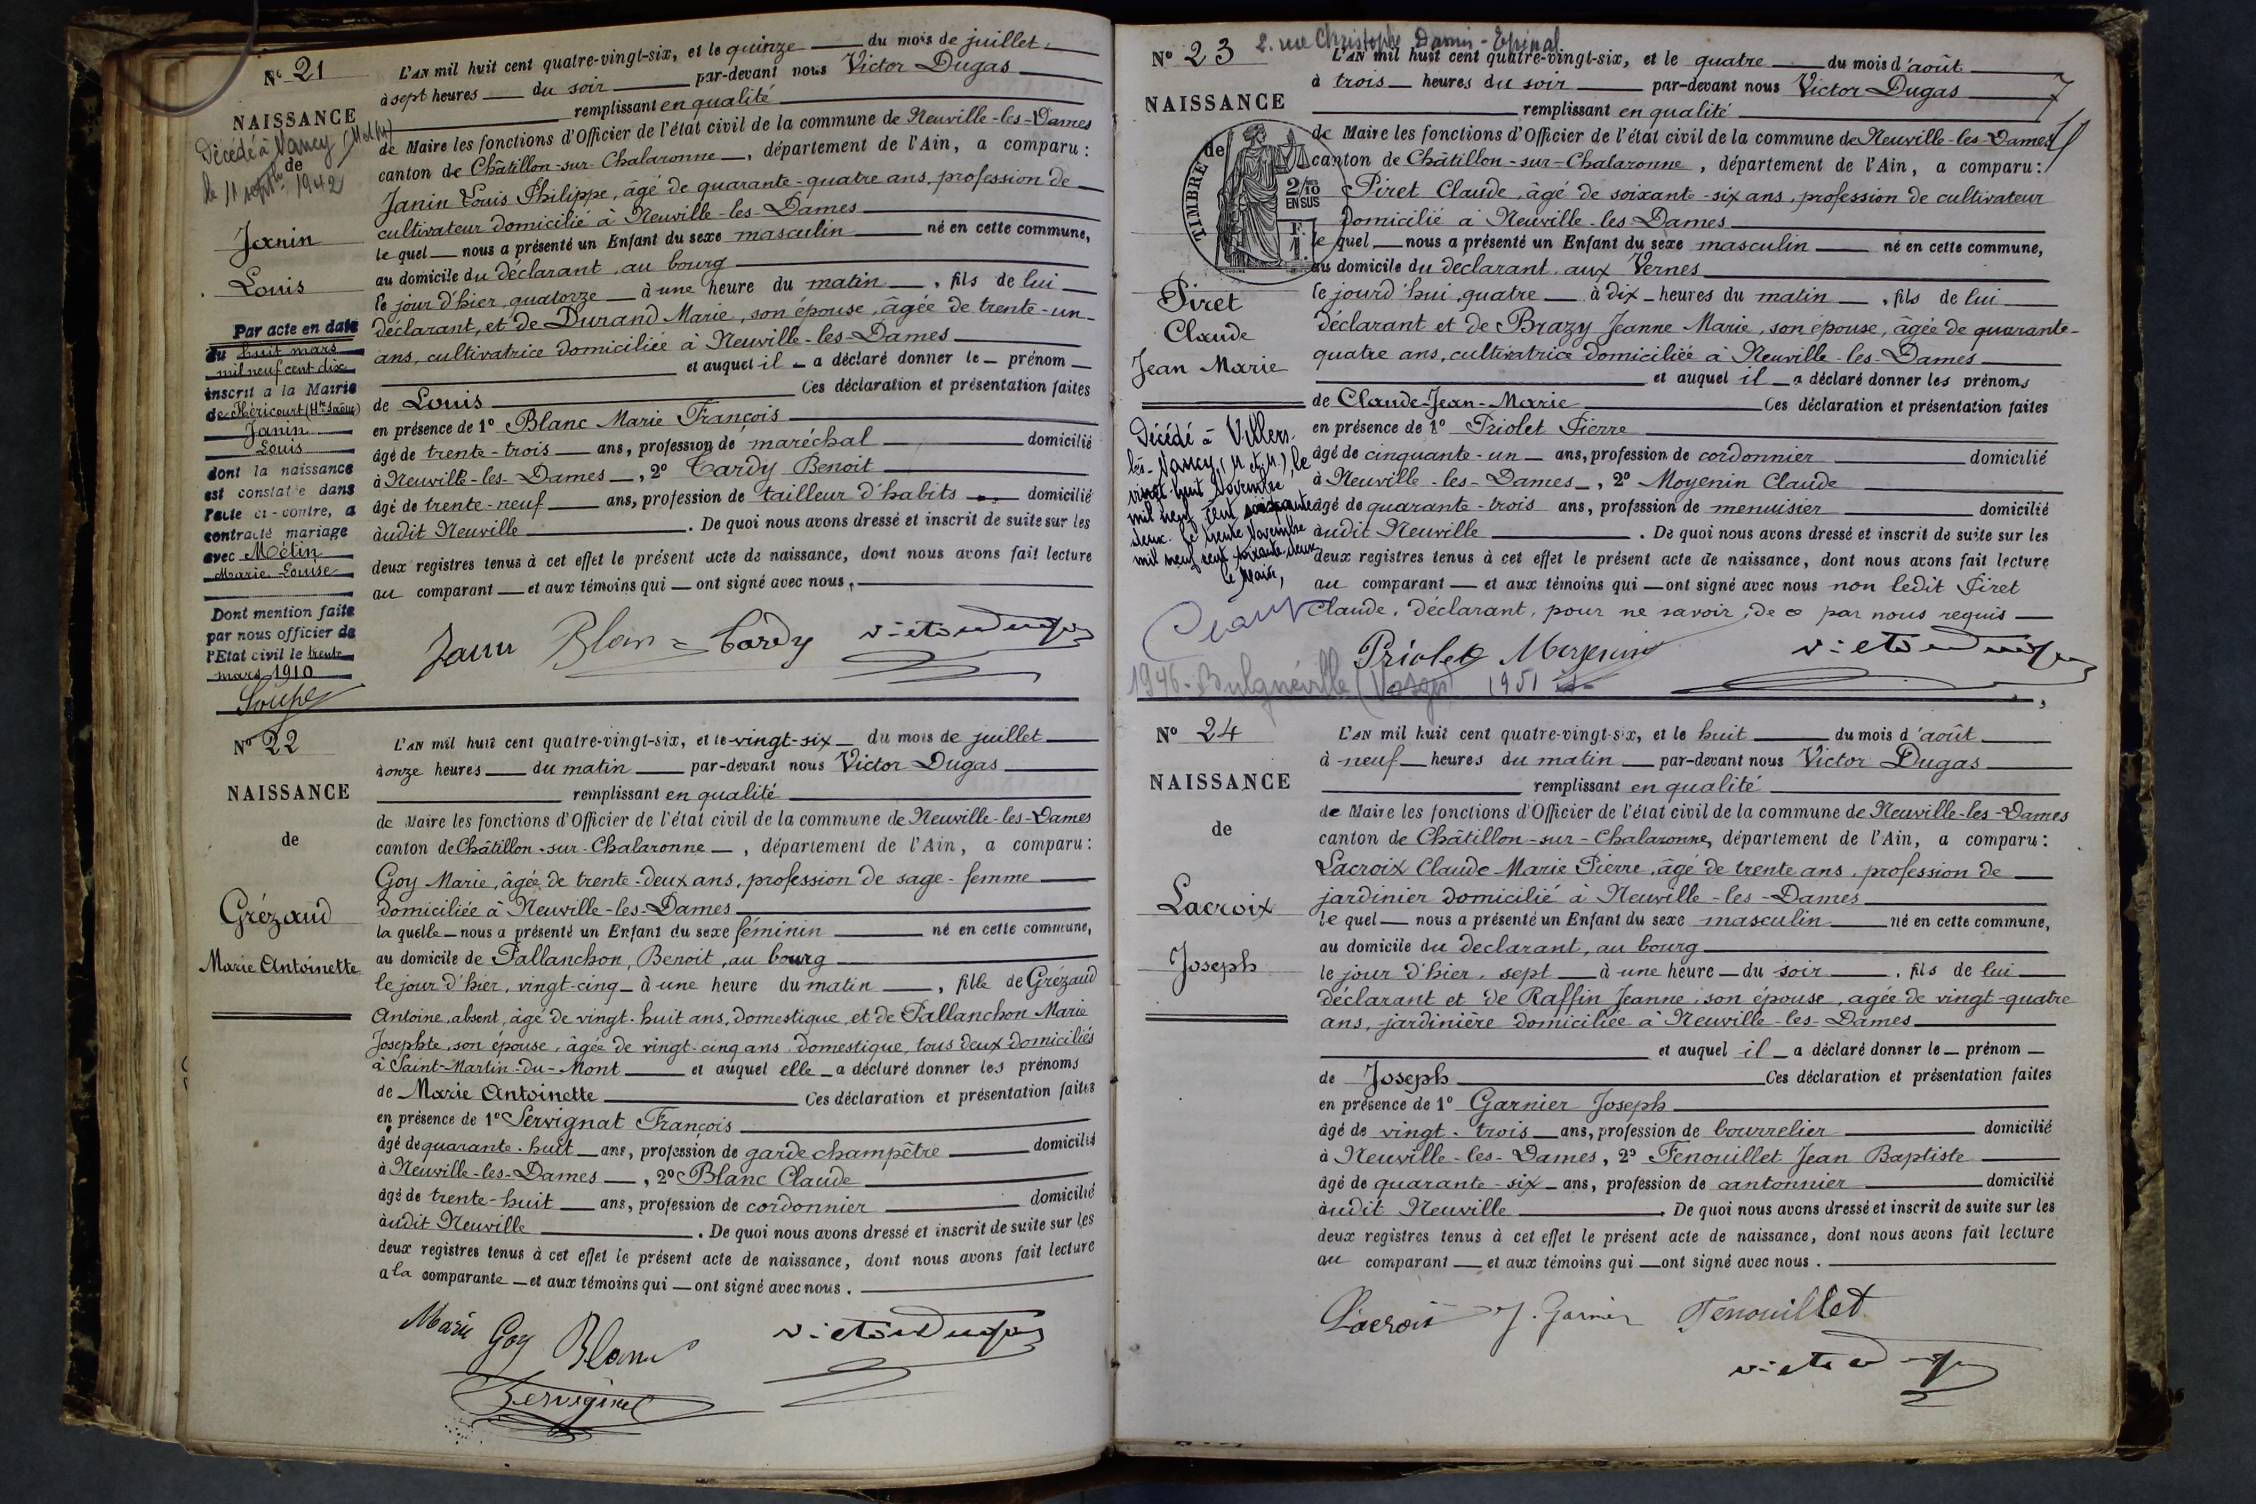 Nº 21
NAISSANCE
Décédé à Nancy (M et M)
de
le 11 septbre 1942
Janin
Louis
Par acte en date
du huit mars
mil neuf cent dix
inscrit à la Mairie
de Héricourt (Hte Saône)
Janin
Louis
dont la naissance
est constatée dans
l'acte ci-contre, a
contracté mariage
avec Métin
Marie Louise
Dont mention faite
par nous officier de
l'Etat civil le trente
mars 1910
L'AN mil huit cent quatre-vingt-six, et le quinze du mois de juillet
à sept heures du soir par-devant nous Victor Dugas
remplissant en qualité
de Maire les fonctions d'Officier de l'état civil de la commune de Neuville-les-Dames
canton de Châtillon-sur-Chalaronne, département de l'Ain, a comparu :
Janin Louis Philippe, âgé de quarante-quatre ans, profession de
cultivateur domicilié à Neuville-les-Dames
le quel nous a présenté un Enfant du sexe masculin né en cette commune,
au domicile du déclarant, au bourg
le jour d'hier, quatorze à une heure du matin, fils de lui
déclarant, et de Durand Marie, son épouse, âgée de trente-un-
ans, cultivatrice domiciliée à Neuville-les-Dames
et auquel il a déclaré donner le prénom
de Louis Ces déclaration et présentation faites
en présence de 1º Blanc Marie François
âgé de trente-trois ans, profession de maréchal domicilié
à Neuville-les-Dames, 2º Cardy Benoit
âgé de trente-neuf ans, profession de tailleur d'habits domicilié
àudit Neuville. De quoi nous avons dressé et inscrit de suite sur les
deux registres tenus à cet effet le présent acte de naissance, dont nous avons fait lecture
au comparant et aux témoins qui ont signé avec nous,
Janin Blanc Cardy Victor Dugas
Nº 22
NAISSANCE
de
Grézaud
Marie Antoinette
L'AN mil huit cent quatre-vingt-six, et le vingt-six du mois de juillet
à onze heures du matin par-devant nous Victor Dugas
remplissant en qualité
de Maire les fonctions d'Officier de l'état civil de la commune de Neuville-les-Dames
canton de Châtillon-sur-Chalaronne, département de l'Ain, a comparu :
Goy Marie, âgée de trente-deux ans, profession de sage-femme
domiciliée à Neuville-les-Dames
la quelle nous a présenté un Enfant du sexe féminin né en cette commune,
au domicile de Pallanchon, Benoit, au bourg
le jour d'hier, vingt-cinq à une heure du matin, fille de Grézaud
Antoine, absent, âgé de vingt-huit ans, domestique, et de Pallanchon Marie
Josephte, son épouse, âgée de vingt-cinq ans domestique, tous deux domiciliés
à Saint-Martin-du-Mont et auquel elle a déclaré donner les prénoms
de Marie Antoinette Ces déclaration et présentation faites
en présence de 1º Servignat François
âgé de quarante-huit ans, profession de garde champêtre domicilié
à Neuville-les-Dames, 2º Blanc Claude
âgé de trente-huit ans, profession de cordonnier domicilié
àudit Neuville. De quoi nous avons dressé et inscrit de suite sur les
deux registres tenus à cet effet le présent acte de naissance, dont nous avons fait lecture
a la comparante et aux témoins qui ont signé avec nous.
Marie Goy Blanc Victor Dugas
Servignat
2. rue Christophe Denis - Epinal
Nº 23
NAISSANCE
de
TIMBRE
2/10 EN SUS
F. 1.
Piret
Claude
Jean Marie
Décédé à Villers-
lès-Nancy (M et M), le
vingt-huit Novembre
mil neuf cent soixante
deux. Le trente Novembre
mil neuf cent soixante deux
Le Maire,
L'AN mil huit cent quatre-vingt-six, et le quatre du mois d'août
à trois heures du soir par-devant nous Victor Dugas
remplissant en qualité
de Maire les fonctions d'Officier de l'état civil de la commune de Neuville-les-Dames
canton de Châtillon-sur-Chalaronne, département de l'Ain, a comparu :
Piret Claude, âgé de soixante-six ans, profession de cultivateur
domicilié à Neuville-les-Dames
le quel nous a présenté un Enfant du sexe masculin né en cette commune,
au domicile du déclarant, aux Vernes
le jourd'hui, quatre à dix heures du matin, fils de lui
déclarant et de Brazy Jeanne Marie, son épouse, âgée de quarante-
quatre ans, cultivatrice domiciliée à Neuville-les-Dames
et auquel il a déclaré donner les prénoms
de Claude-Jean-Marie Ces déclaration et présentation faites
en présence de 1º Priolet Pierre
âgé de cinquante-un ans, profession de cordonnier domicilié
à Neuville-les-Dames, 2º Moyenin Claude
âgé de quarante-trois ans, profession de menuisier domicilié
àudit Neuville. De quoi nous avons dressé et inscrit de suite sur les
deux registres tenus à cet effet le présent acte de naissance, dont nous avons fait lecture
au comparant et aux témoins qui ont signé avec nous non ledit Piret
Claude, déclarant, pour ne savoir, de ce par nous requis
Priolet Moyenin Victor Dugas
1946 - Bulgnéville (Vosges) 1951
Nº 24
NAISSANCE
de
Lacroix
Joseph
L'AN mil huit cent quatre-vingt-six, et le huit du mois d'août
à neuf heures du matin par-devant nous Victor Dugas
remplissant en qualité
de Maire les fonctions d'Officier de l'état civil de la commune de Neuville-les-Dames
canton de Châtillon-sur-Chalaronne, département de l'Ain, a comparu :
Lacroix Claude Marie Pierre, âgé de trente ans, profession de
jardinier domicilié à Neuville-les-Dames
le quel nous a présenté un Enfant du sexe masculin né en cette commune,
au domicile du declarant, au bourg
le jour d'hier, sept à une heure du soir, fils de lui
déclarant et de Raffin Jeanne, son épouse, agée de vingt-quatre
ans, jardinière domiciliée à Neuville-les-Dames
et auquel il a déclaré donner le prénom
de Joseph Ces déclaration et présentation faites
en présence de 1º Garnier Joseph
âgé de vingt-trois ans, profession de bourrelier domicilié
à Neuville-les-Dames, 2º Fenouillet Jean Baptiste
âgé de quarante-six ans, profession de cantonnier domicilié
àudit Neuville. De quoi nous avons dressé et inscrit de suite sur les
deux registres tenus à cet effet le présent acte de naissance, dont nous avons fait lecture
au comparant et aux témoins qui ont signé avec nous.
Lacroix J. Garnier Fenouillet
Victor Dugas